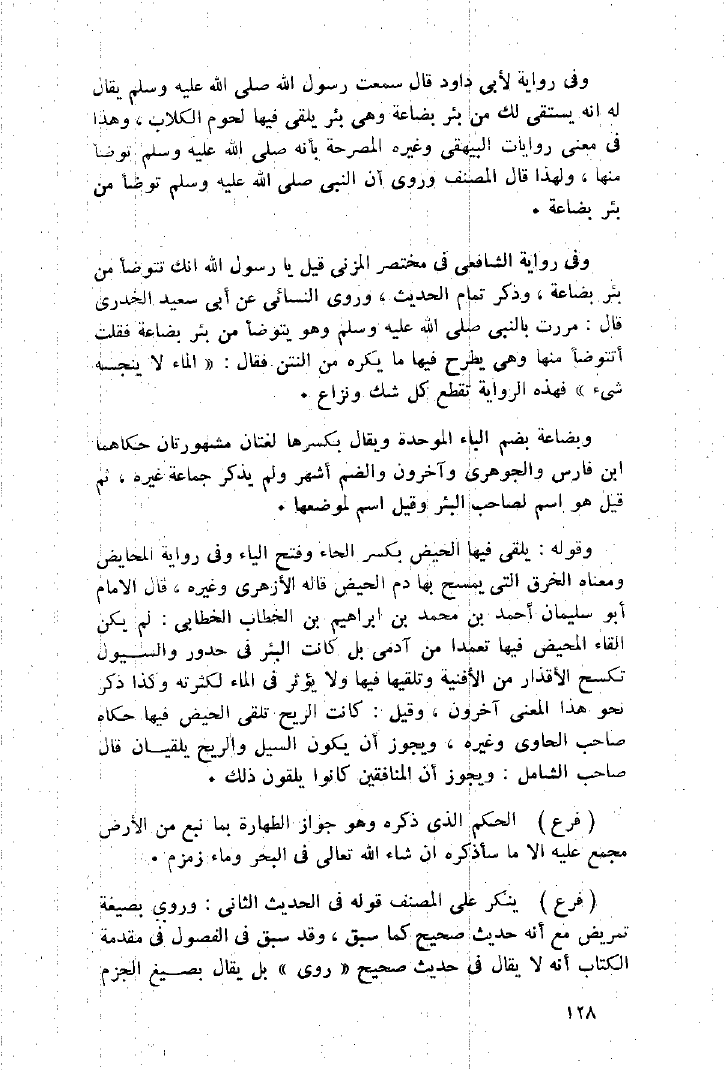 وفى رواية لأبى داود قال سمعت رسول الله صلى الله عليه وسلم يقال
له انه يستقى لك من بئر بضاعة وهى بئر يلقى فيها لحوم الكلاب ، وهذا
فى معنى روايات البيهقى وغيره المصرحة بأنه صلى الله عليه وسلم توضأ
منها ، ولهذا قال المصنف وروى أن النبى صلى الله عليه وسلم توضأ من
بئر بضاعة •
وفى رواية الشافعى فى مختصر المزنى قيل يا رسول الله انك تتوضأ من
بئر بضاعة ، وذكر تمام الحديث ، وروى النسائى عن أبى سعيد الخدرى
قال : مررت بالنبى صلى الله عليه وسلم وهو يتوضأ من بئر بضاعة فقلت
أتتوضأ منها وهى يطرح فيها ما يكره من النتن فقال : « الماء لا ينجسه
شىء » فهذه الرواية تقطع كل شك ونزاع •
وبضاعة بضم الباء الموحدة ويقال بكسرها لغتان مشهورتان حكاهما
ابن فارس والجوهرى وآخرون والضم أشهر ولم يذكر جماعة غيره ، ثم
قيل هو اسم لصاحب البئر وقيل اسم لموضعها •
وقوله : يلقى فيها الحيض بكسر الحاء وفتح الياء وفى رواية المحايض
ومعناه الخرق التى يمسح بها دم الحيض قاله الأزهرى وغيره ، قال الامام
أبو سليمان أحمد بن محمد بن ابراهيم بن الخطاب الخطابى : لم يكن
القاء المحيض فيها تعمدا من آدمى بل كانت البئر فى حدور والسيول
تكسح الأقذار من الأفنية وتلقيها فيها ولا يؤثر فى الماء لكثرته وكذا ذكر
نحو هذا المعنى آخرون ، وقيل : كانت الريح تلقى الحيض فيها حكاه
صاحب الحاوى وغيره ، ويجوز أن يكون السيل والريح يلقيان قال
صاحب الشامل : ويجوز أن المنافقين كانوا يلقون ذلك •
( فرع ) الحكم الذى ذكره وهو جواز الطهارة بما نبع من الأرض
مجمع عليه الا ما سأذكره ان شاء الله تعالى فى البحر وماء زمزم •
( فرع ) ينكر على المصنف قوله فى الحديث الثانى : وروي بصيغة
تمريض مع أنه حديث صحيح كما سبق ، وقد سبق فى الفصول فى مقدمة
الكتاب أنه لا يقال فى حديث صحيح « روى » بل يقال بصيغ الجزم
١٢٨